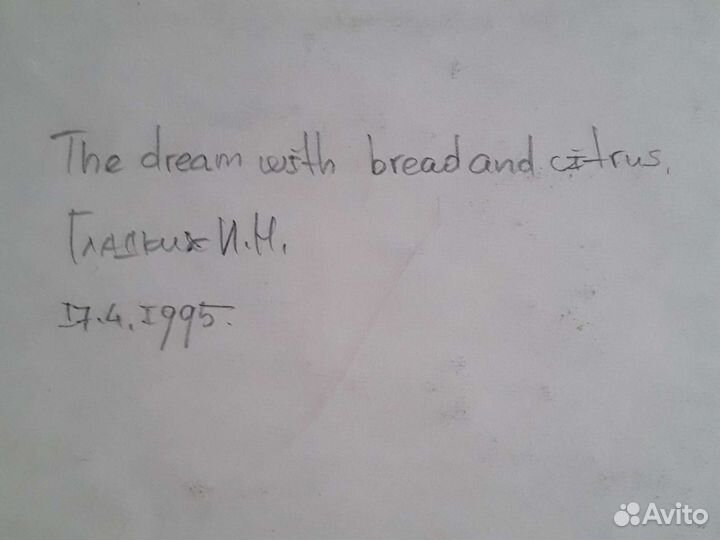 The dream with bread and citrus.
Гладких И.Н.
17.4.1995.
Avito